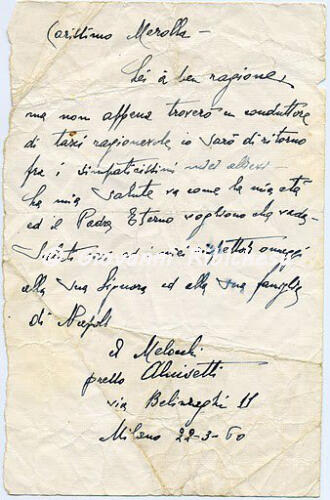 Carissimo Merolla -
Lei à ben ragione,
ma non appena troverò un conduttore
di taxi ragionevole io sarò di ritorno
fra i simpaticissimi miei allievi -
La mia salute va come la mia età
ed il Padre Eterno vogliono che vada -
Saluti cari ed i miei rispettosi omaggi
alla sua Signora ed alla sua famiglia
di Napoli
il Melocchi
presso Aluisetti
via Belinzaghi 11
Milano 22-3-60